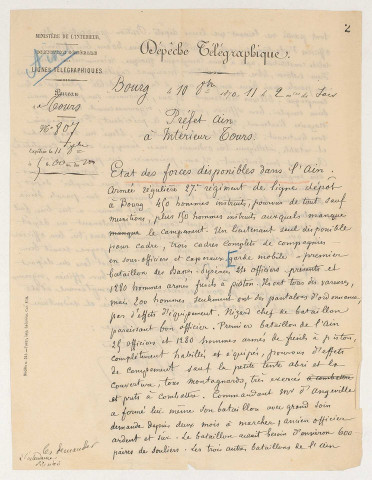 2
MINISTÈRE DE L'INTÉRIEUR
LIGNES TÉLÉGRAPHIQUES
Dépêche Télégraphique.
Bourg le 10 8bre 1870 11 h 2 m du Soir
Tours
N° 807
Préfet Ain
à Intérieur Tours.
Etat des forces disponibles dans l'Ain.
Armée régulière 27e régiment de ligne dépôt
à Bourg 450 hommes instruits, pourvus de tout sauf
munitions, plus 150 hommes instruits auxquels manque
manque le campement. Un lieutenant seul disponible
pour cadre, trois cadres complets de compagnies
en sous officiers et caporaux Garde mobile - premier
bataillon des Basses-Pyrénées officiers présents et
1280 hommes armés fusils à piston. Ils ont tous des vareuses,
mais 200 hommes seulement ont des pantalons d'ordonnance
pas d'effets d'équipement. Nigend chef de bataillon
paraissant bon officier. Premier bataillon de l'Ain
25 officiers et 1280 hommes armés de fusils à piston,
complètement habillés et équipés, pourvus d'effets
de campement sauf la petite tente abri et la
couverture, tous montagnards, très exercés à combattre
et prêts à combattre. Commandant Mr d'Angeville
a formé lui même son bataillon avec grand soin
demande depuis deux mois à marcher, ancien officier
ardent et sûr. Le bataillon aurait besoin d'environ 600
paires de souliers. Les trois autres bataillons de l'Ain